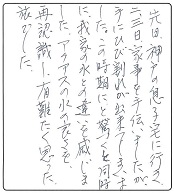 先日神戸の息子宅に行き、
二三日家事を手伝いましたが
手にひび割れが出来てしまいま
した。この時期にと驚くと同時
に、我家の水との違いを感じま
した。アクアスの水の良さを
再認識し有難たく思った
次第でした。